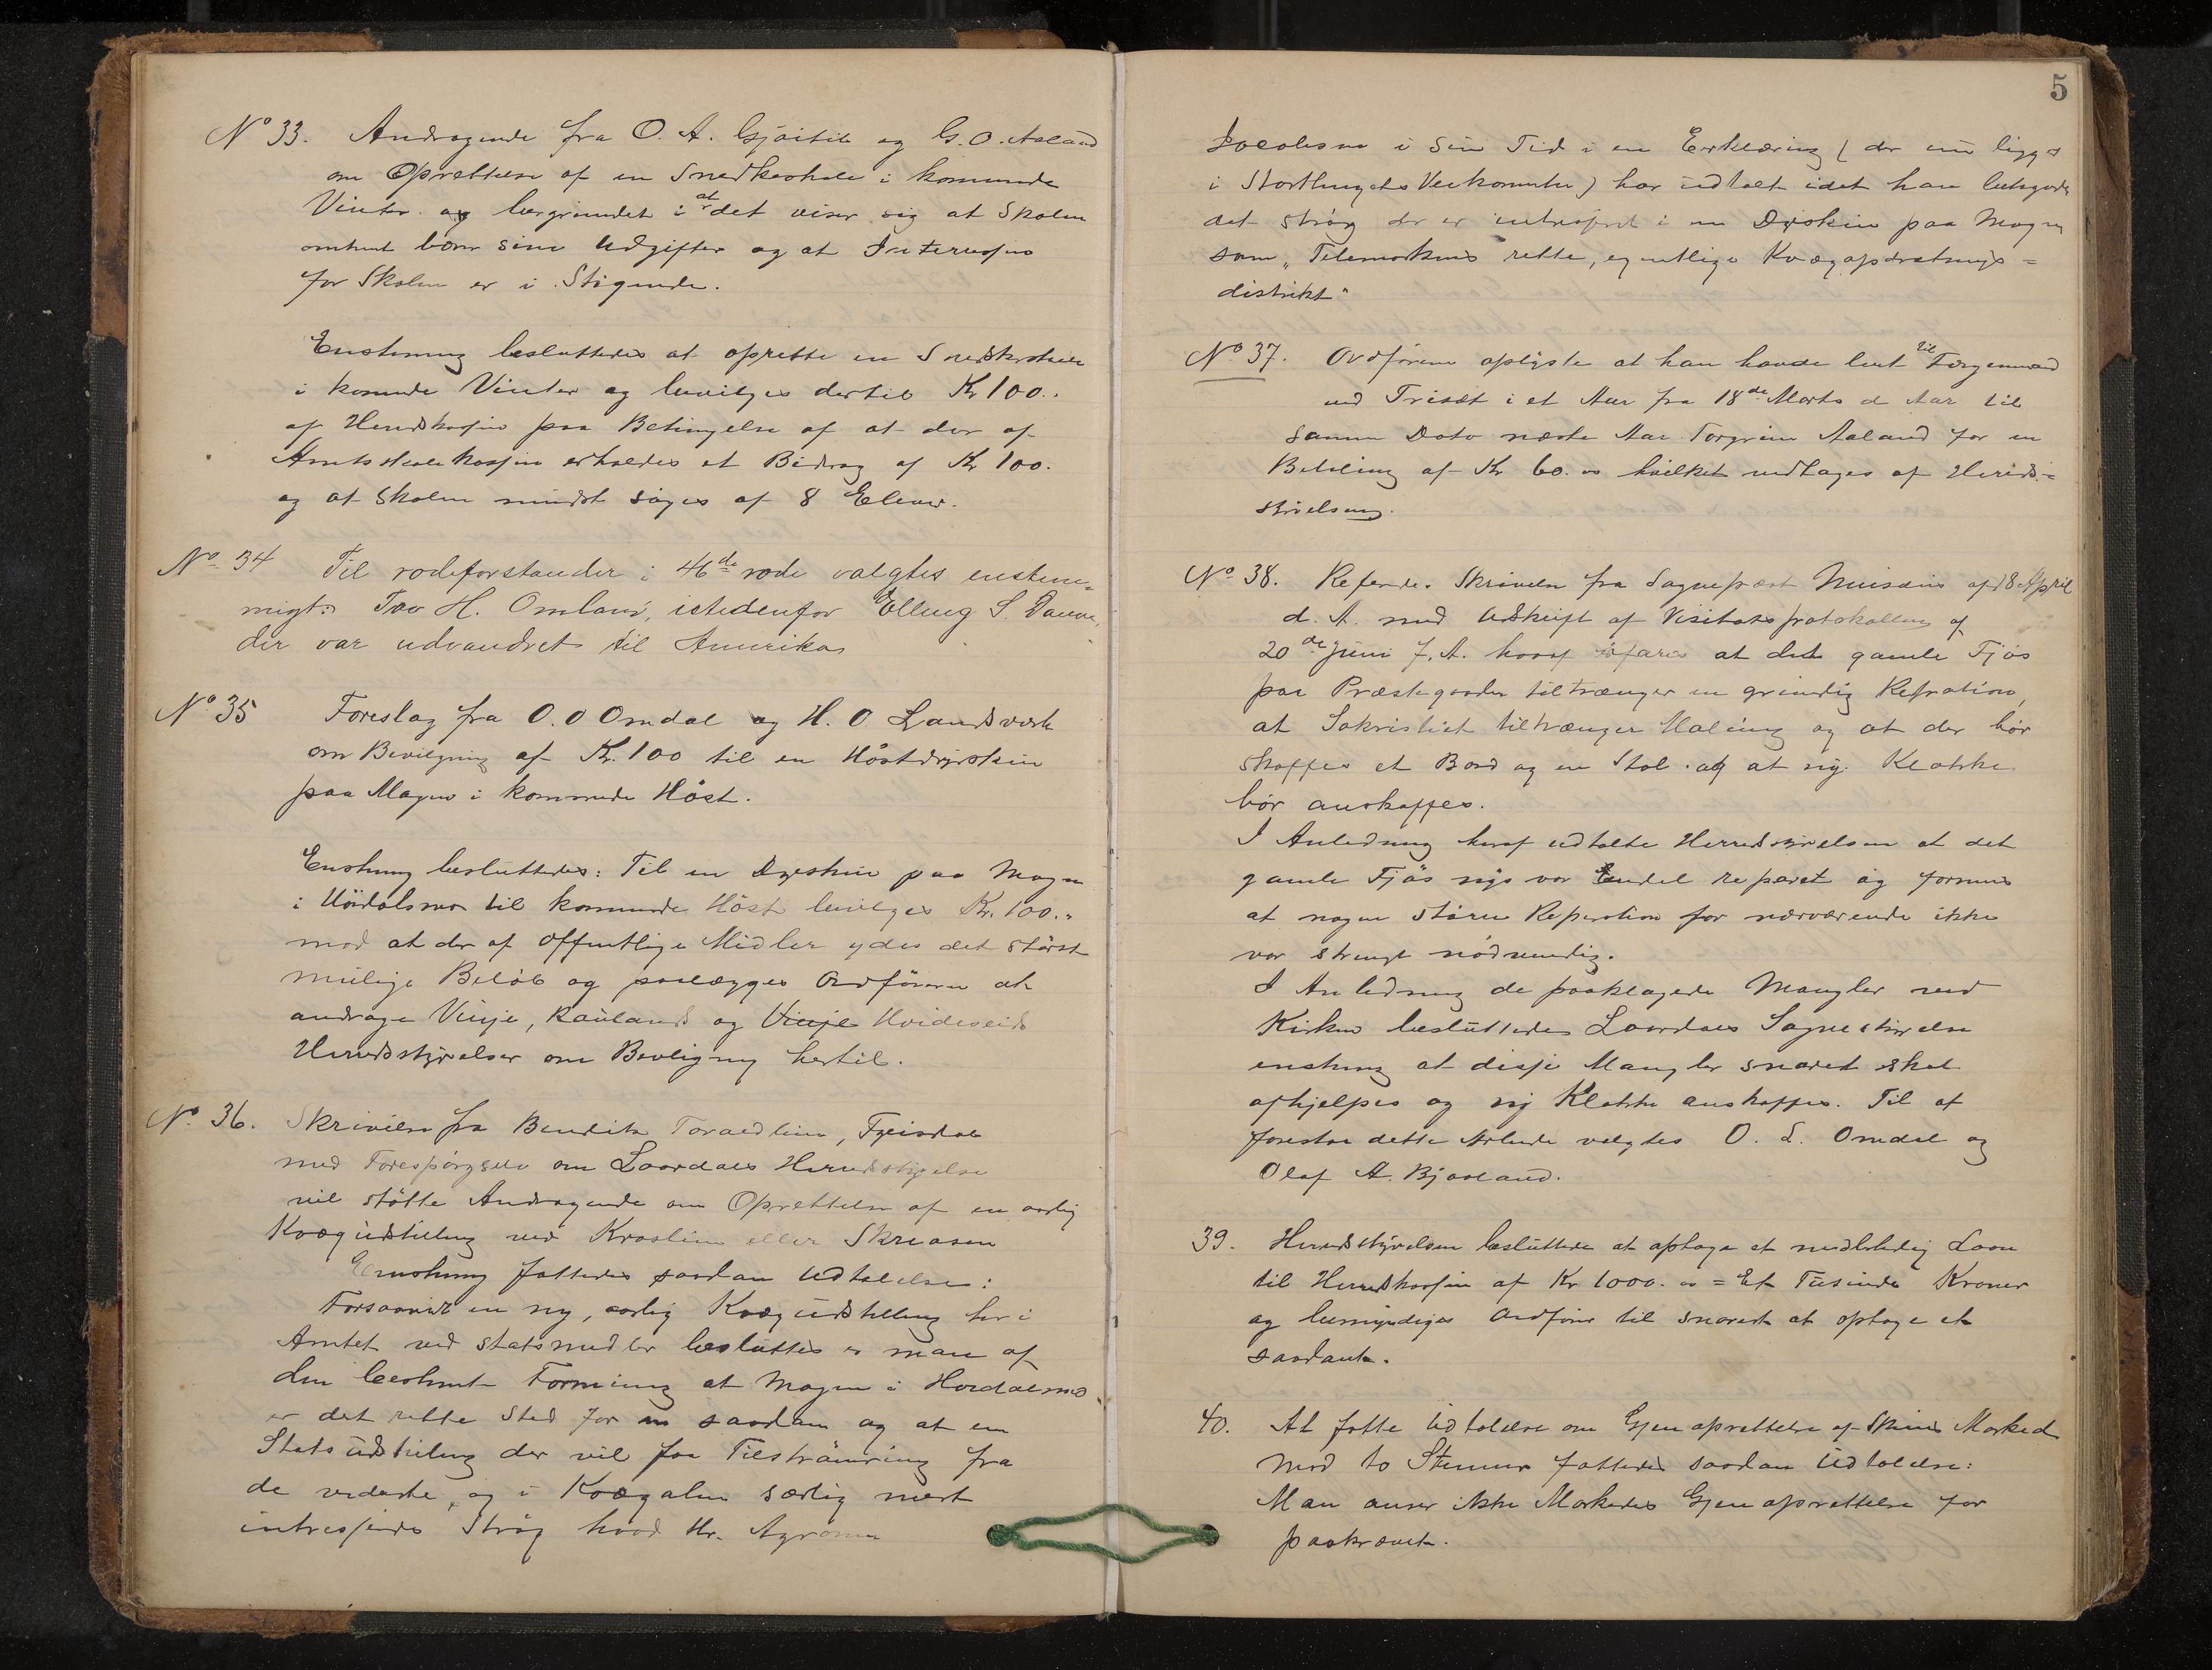 No 33. Andragende fra O. A. Gjøitil og G. O. Aaland
om Oprettelse af en Snedkerskole i kommende
Vinter og begrundet i at det viser sig at Skolen
omtrent bærer sine Udgifter og at Interessen
for Skolen er i Stigende.
Enstemmig besluttedes at oprette en Snedkerskole
i kommende Vinter og bevilges dertil Kr 100..
af Herredskassen paa Betingelse af at der af
Amtsskolekassen erholdes et Bidrag af Kr 100.
og at Skolen mindst søges af 8 Elever.
No 34 Til rodeforstander i 46de rode valgtes enstem-
migt: Tov H. Omland, istedenfor Elling S.
der var udvandret til Amerika
No 35 Foreslag fra O. O Omdal og H. O. Landsverk
om Bevilgning af Kr. 100 til en Høstdyrskin
paa Magen i kommende Høst.
Enstemmig besluttedes: Til en Dyrskin paa Magen
i Høidalsmo til kommende Høst bevilges Kr. 100.„
mod at der af offentlige Midler ydes det størst
mulige Beløb og paalægges Ordføreren at
andrage Vinje, Raulands og Vinje Hvideseids
Herredsstyrelser om Bevilgning hertil.
No 36. Skrivelse fra Bendik Toraedlien, Fyrisdal
med Forespørgsel om Laardals Herredsstyrelse
vil støtte Andragende om Oprettelse af en aarlig
Kvægudstilling ved Kraslien eller Skreosen
Enstemmig fattedes saadan Udtalelse:
Forsaavidt en ny, aarlig Kvægudstilling her i
Amtet ved statsmidler besluttes er man af
den bestemte Formening at Magen i Høidalsmo
er det rette Sted for en saadan og at en
Statsudstilling der vil faa Tilstrømning fra
de videste, og i Kvægalen særlig mest
intresserede Strøg hvad Hr. Agronom
5
Jacobsen i sin Tid i en Erklæring (der nu ligger
i Storthingets Veikomite) har udtalt idet han betegnede
det strøg der er intresseret i en Dyrskin paa Magen
som „Telemarkens rette, egentlige Kvægopdrætnings=
distrikt"
No 37. Ordføreren oplyste at han havde leiet til Færgemand
ved Trisæt i et Aar fra 18de Marts d Aar til
samme Dato næste Aar Torgrim Aaland for en
Betaling af Kr 60. „ hvilket vedtages af Herreds=
styrelsen.
No 38. Refererede Skrivelse fra Sognepræst Nuisæus af 18 April
d. A. med Udskrift af Visitatsprotokollen af
20de Juni f. A. hvoraf erfares at det gamle Fjøs
paa Præstegaarden tiltrænger en grundig Repration,
at Sakristiet tiltrænger Maling og at der bør
skaffes et Bord og en Stol og at ny Klokke
bør anskaffes.
I Anledning heraf udtalte Herredsstyrelsen at det
gamle Fjøs nys var Endel reparet og formens
at nogen større Reperation for nærværende ikke
var strengt nødvendig.
I Anledning de paaklagede Mangler ved
Kirken besluttedes Laardals Sognestyrelse
enstemmig at disse Mangler snarest skal
afhjelpes og ny Klokke anskaffes. Til at
forestaa dette Arbeide valgtes O. L. Omdal og
Olaf A. Bjaaland.
39. Herredsstyrelsen besluttede at optage et midlertidig Laan
til Herredskassen af Kr 1000. „ = Et Tusinde Kroner
og bemyndiges Ordfører til snarest at optage et
saadant.
40. At fatte Udtalelse om Gjenoprettelse af Skiens Marked
Mod to Stemmer fattedes saadan Udtalelse:
Man anser ikke Markedes Gjenoprettelse for
paakrævet.